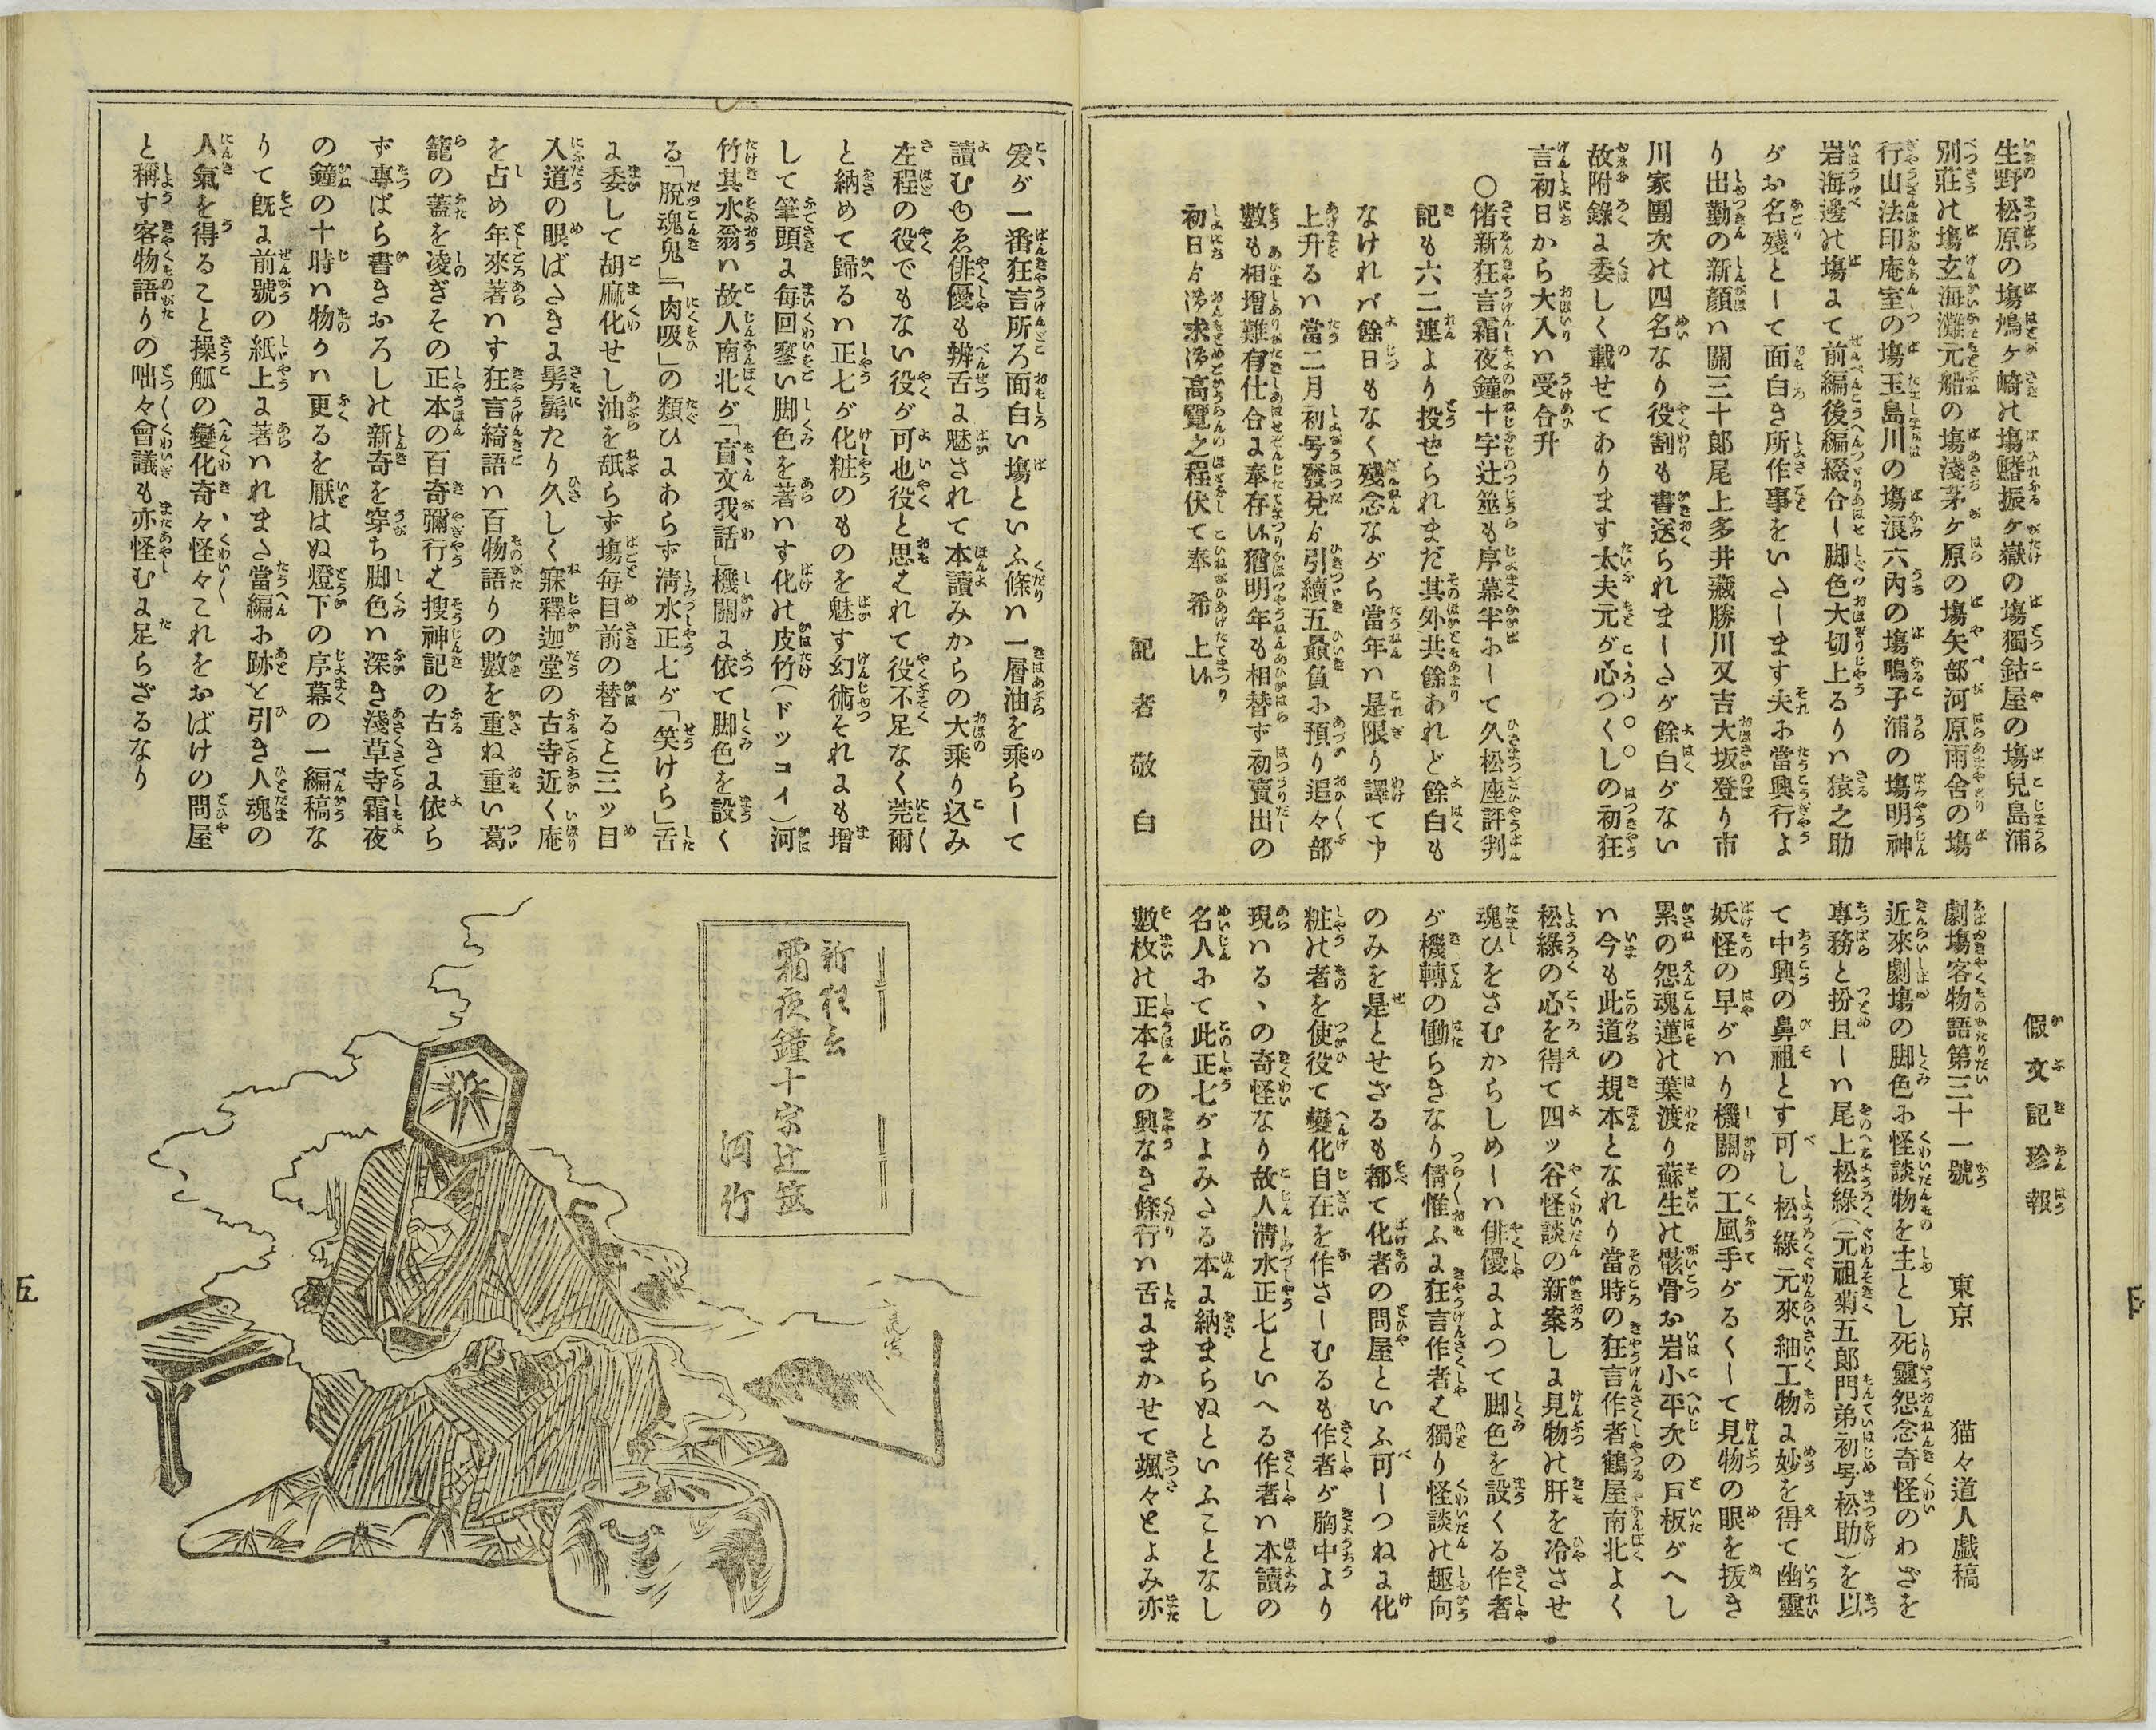 生野松原の塲鳩ヶ崎の塲鰭振ヶ嶽の塲獨鈷屋の塲兒島浦
別莊の塲玄海灘元船の塲淺茅ヶ原の塲矢部河原雨舎の塲
行山法印庵室の塲玉島川の塲浪六内の塲鳴子浦の塲明神
岩海邊の塲まて前編後編綴合し脚色大切上るりハ猿之助
がお名殘として面白き所作事をいさします夫ゟ當興行よ
り出勤の新顔ハ關三十郎尾上多井藏勝川又吉大坂登り市
川家團次の四名なり役割も書送られましさが餘白がない
故附錄ょ委しく載せてわります太夫元が心つくしの初狂
言初日から大入ハ受合升
〇偖新狂言霜夜鐘十字辻筮も序幕半ゟして久松座評判
記も六二連より投せられまだ其外共餘あれど餘白も
なけれバ餘日もなく殘念ながら當年ハ是限り譯て申
上升るハ當二月初号發兌ゟ引續五最負ゟ預り追々部
數も相増難有仕合ょ奉存候猶明年も相替ず初賣出の
初日ゟ御求御高覽之程伏て奉希上候
記者敬白
假文記珍報
劇塲客物語第三十一號　東京　猫々道人戯稿
近來劇塲の脚色ゟ怪談物を主とし死靈怨念奇怪のわざを
專務と扮且しハ尾上松綠(元祖菊五郎門弟初号松助)を以
て中興の鼻祖とす可し松綠元來細工物ょ妙を得て幽靈
妖怪の早がハり機關の工風手がるくして見物の眼を抜き
累の怨魂蓮の葉渡り蘇生の骸骨お岩小平次の戸板がへし
ハ今も此道の規本となれり當時の狂言作者鶴屋南北よく
松綠の心を得て四ッ谷怪談の新案しょ見物の肝を冷させ
魂ひをさむからしめしハ俳優ょよつて脚色を設くる作者
が機轉の働らきなり倩惟ふょ狂言作者は獨り怪談の趣向
のみを是とせざるも都て化者の問屋といふ可しつねょ化
粧の者を使役て變化自在を作さしむるも作者が胸中より
現ハるゝの奇怪なり故人淸水正七といへる作者ハ本讀の
名人ゟて此正七がよみさる本ょ納まらぬといふことなし
數枚の正本その興なき條行ハ舌ょまかせて颯々とよみ亦
爰が一番狂言所ろ面白い塲といふ條ハ一層油を乘らして
讀むゆゑ俳優も辨舌ょ魅されて本讀みからの大乘り込み
左程の役でもない役が可也役と思はれて役不足なく莞爾
と納めて歸るハ正七が化粧のものを魅す幻術それょも增
して筆頭ょ每回塞い脚色を著ハす化の皮竹(ドッコイ)河
竹其水翁ハ故人南北が「盲文我話」機關ょ依て脚色を設く
る「脫魂鬼」「肉吸」の類ひょあらず淸水正七が「笑けら」舌
ょ委して胡麻化せし油を舐らず塲每目前の替ると三ッ目
入道の眼ばさきょ髣髴たり久しく寐釋迦堂の古寺近く庵
を占め年來著ハす狂言綺語ハ百物語りの數を重ね重い葛
籠の蓋を凌ぎその正本の百奇彌行は搜神記の古きょ依ら
ず專ぱら書きおろしの新奇を穿ち脚色ハ深き淺草寺霜夜
の鐘の十時ハ物クハ更るを厭はぬ燈下の序幕の一編稿な
りて旣ょ前號の紙上ょ著ハれまさ當編ゟ跡と引き人魂の
人氣を得ること操觚の變化奇々怪々これをおばけの問屋
と稱す客物語りの咄々會議も亦怪むょ足らざるなり
新狂言
霜夜鐘十字辻筮
河竹
五